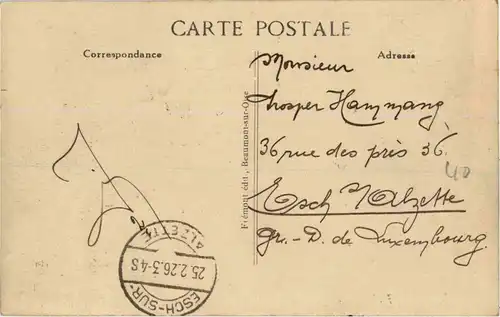 CARTE POSTALE
Correspondance
Adresse
Frémont édit., Beaumont-sur-Oise
Monsieur
Prosper Hammang
36 rue des prés 36.
Esch s/Alzette
Gr.-D. de Luxembourg.
40
ESCH-SUR-
ALZETTE
25.2.26.3-4S